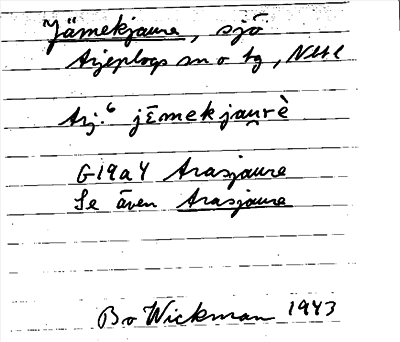 Jämekjaure, sjö
Arjeplogs sn o tg, Nbtl
Arj.⁶ jēmekjau̯rè
G19a4 Arasjaure
Se även Arasjaure
Bo Wickman 1943